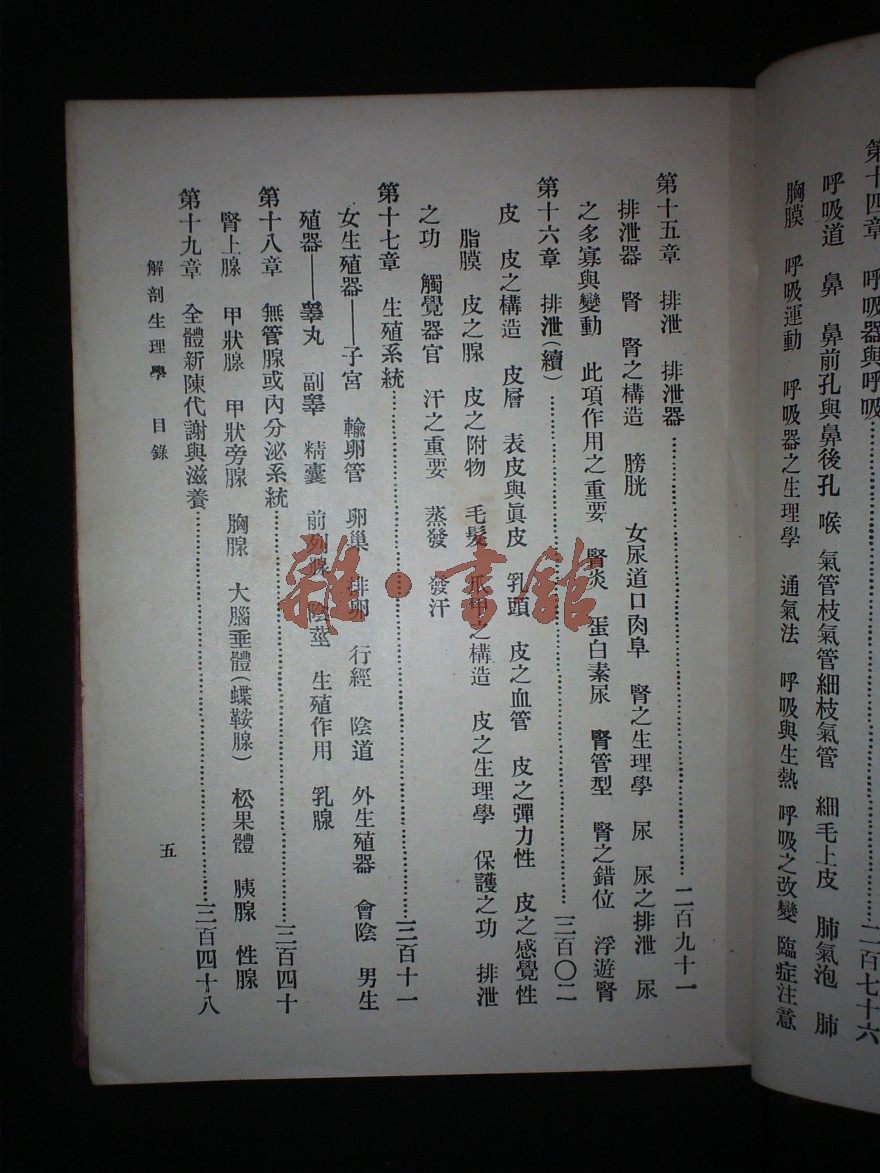 第十四章　呼吸器與呼吸……二百七十六
呼吸道　鼻　鼻前孔與鼻後孔　喉　氣管枝氣管細枝氣管　細毛上皮　肺氣泡　肺
胸膜　呼吸運動　呼吸器之生理學　通氣法　呼吸與生熱　呼吸之改變　臨症注意
第十五章　排泄　排泄器……二百九十一
排泄器　腎　腎之構造　膀胱　女尿道口肉阜　腎之生理學　尿　尿之排泄　尿
之多寡與變動　此項作用之重要　腎炎　蛋白素尿　腎管型　腎之錯位　浮遊腎
第十六章　排泄（續）……三百〇二
皮　皮之構造　皮層　表皮與眞皮　乳頭　皮之血管　皮之彈力性　皮之感覺性
脂膜　皮之腺　皮之附物　毛髮　爪甲之構造　皮之生理學　保護之功　排泄
之功　觸覺器官　汗之重要　蒸發　發汗
第十七章　生殖系統……三百十一
女生殖器——子宮　輸卵管　卵巢　排卵　行經　陰道　外生殖器　會陰　男生
殖器——睾丸　副睾　精囊　前列腺　陰莖　生殖作用　乳腺
第十八章　無管腺或內分泌系統……三百四十
腎上腺　甲狀腺　甲狀旁腺　胸腺　大腦垂體（蝶鞍腺）　松果體　胰腺　性腺
第十九章　全體新陳代謝與滋養……三百四十八
解剖生理學　目錄
五
雜·書館